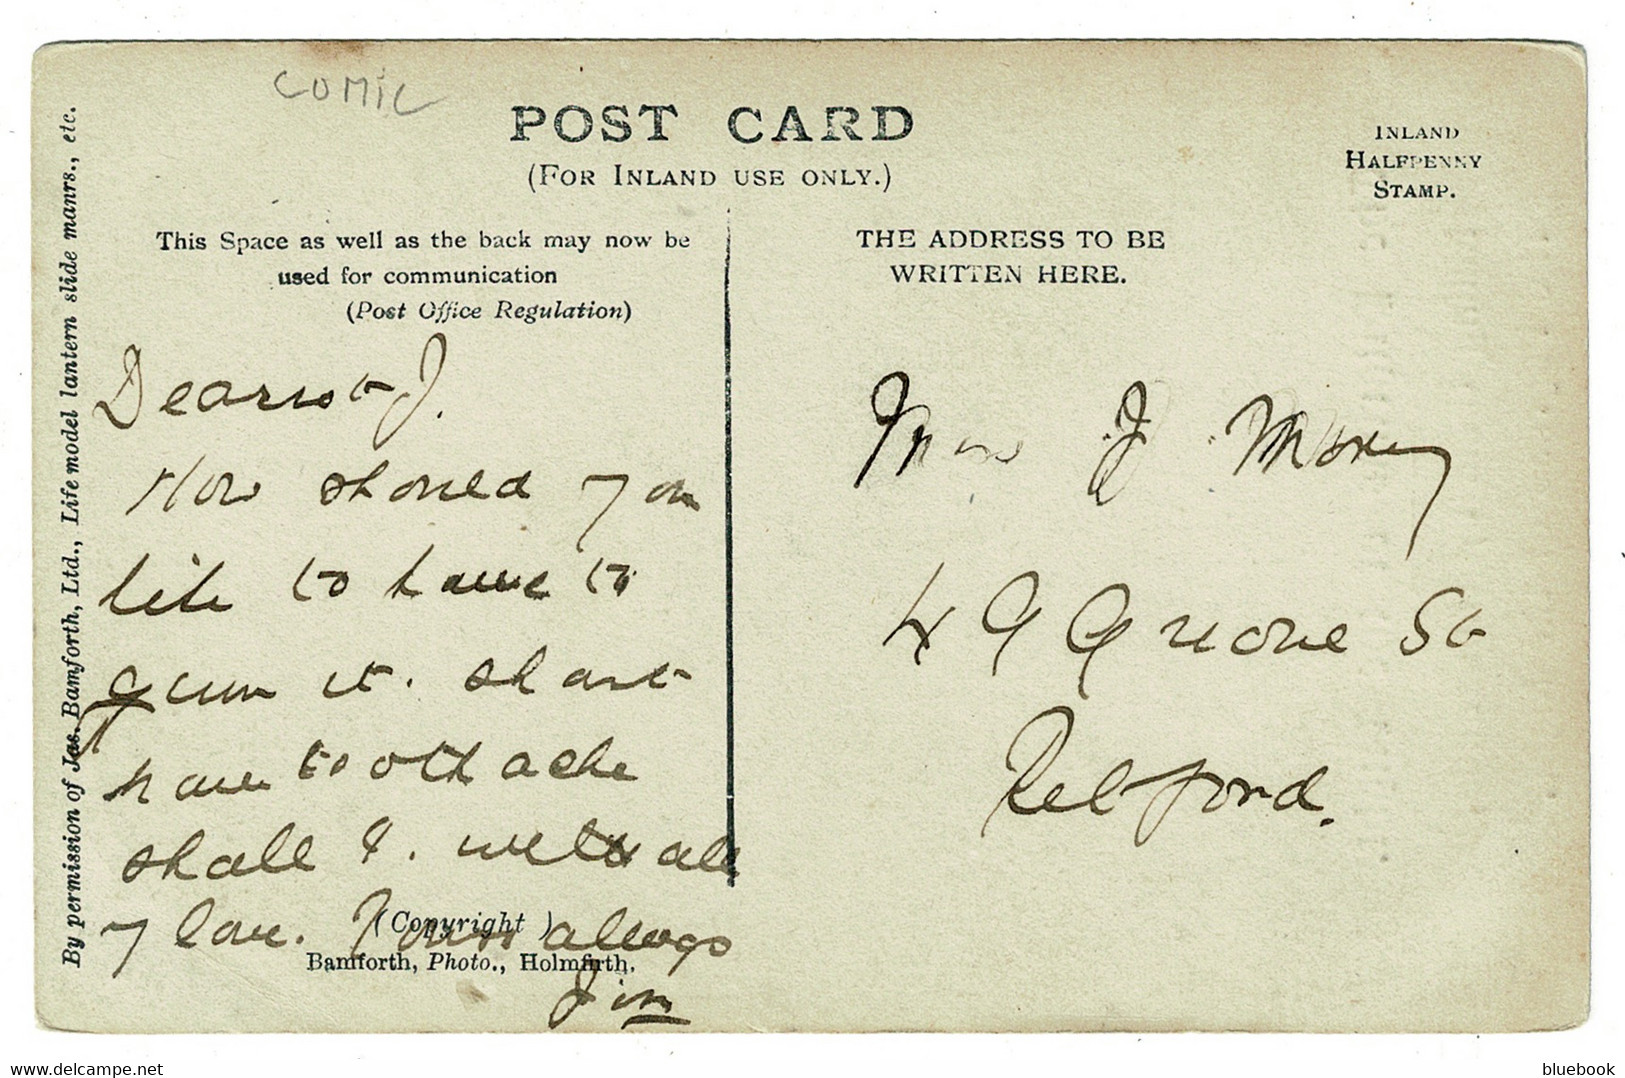 COMIC
POST CARD
(FOR INLAND USE ONLY.)
INLAND
HALFPENNY
STAMP.
This Space as well as the back may now be
used for communication
(Post Office Regulation)
THE ADDRESS TO BE
WRITTEN HERE.
By permission of Jas. Bamforth, Ltd., Life model lantern slide manrs., etc.
Dearest J.
How should you
like to have to
it. shant
have toothache
shall I. with all
my love. Yours always
Jim
(Copyright)
Bamforth, Photo., Holmfirth.
J
49 Grove St
Retford.
delcampe.net
bluebook